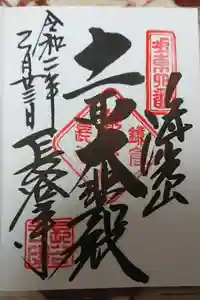 坂東四番
海光山
十一面大悲殿
鎌倉
令和二年
二月廿三日
長谷寺